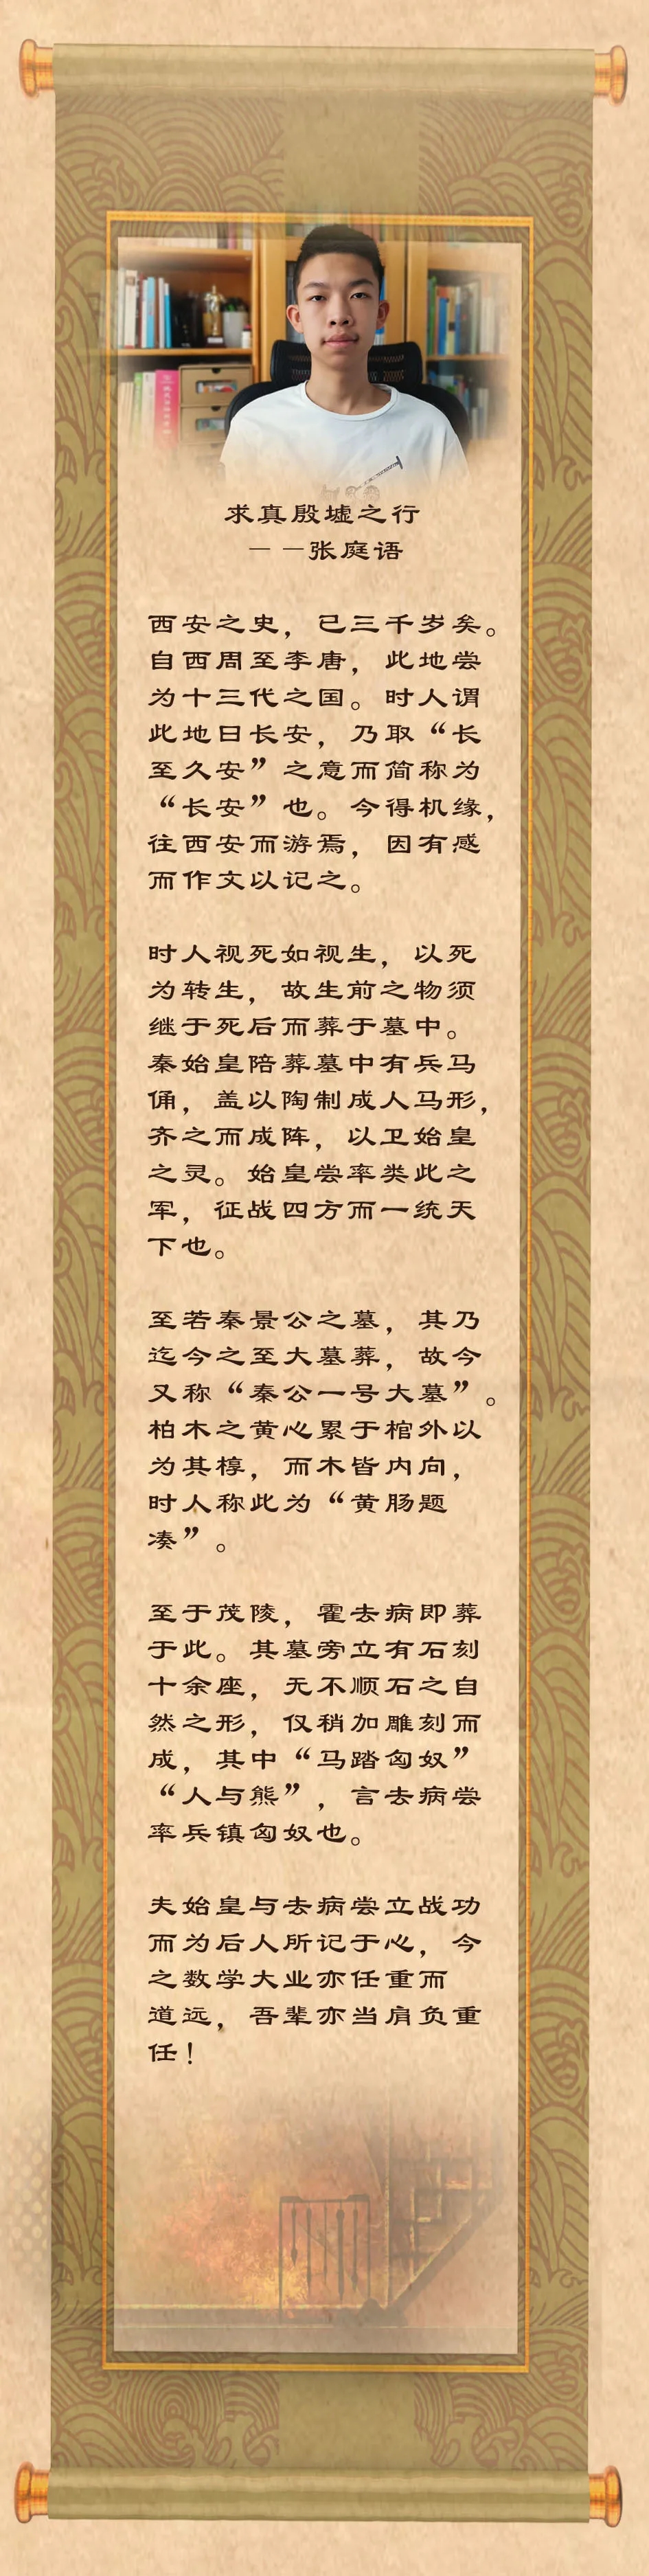 求真殷墟之行
——张庭语
西安之史，已三千岁矣。
自西周至李唐，此地尝
为十三代之国。时人谓
此地曰长安，乃取“长
至久安”之意而简称为
“长安”也。今得机缘，
往西安而游焉，因有感
而作文以记之。
时人视死如视生，以死
为转生，故生前之物须
继于死后而葬于墓中。
秦始皇陪葬墓中有兵马
俑，盖以陶制成人马形，
齐之而成阵，以卫始皇
之灵。始皇尝率类此之
军，征战四方而一统天
下也。
至若秦景公之墓，其乃
迄今之至大墓葬，故今
又称“秦公一号大墓”。
柏木之黄心累于棺外以
为其椁，而木皆内向，
时人称此为“黄肠题
凑”。
至于茂陵，霍去病即葬
于此。其墓旁立有石刻
十余座，无不顺石之自
然之形，仅稍加雕刻而
成，其中“马踏匈奴”
“人与熊”，言去病尝
率兵镇匈奴也。
夫始皇与去病尝立战功
而为后人所记于心，今
之数学大业亦任重而
道远，吾辈亦当肩负重
任！